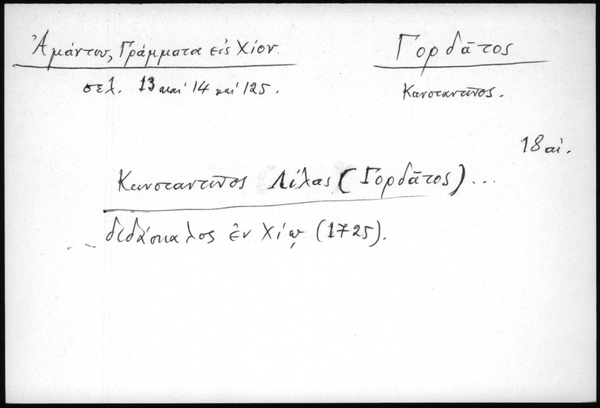 Ἀμάντου, Γράμματα εἰς Χίον.
σελ. 13 καὶ 14 καὶ 125.
Γορδᾶτος
Κωνσταντῖνος.
18 αἰ.
Κωνσταντῖνος Λίλας (Γορδᾶτος)...
διδάσκαλος ἐν Χίῳ (1725).